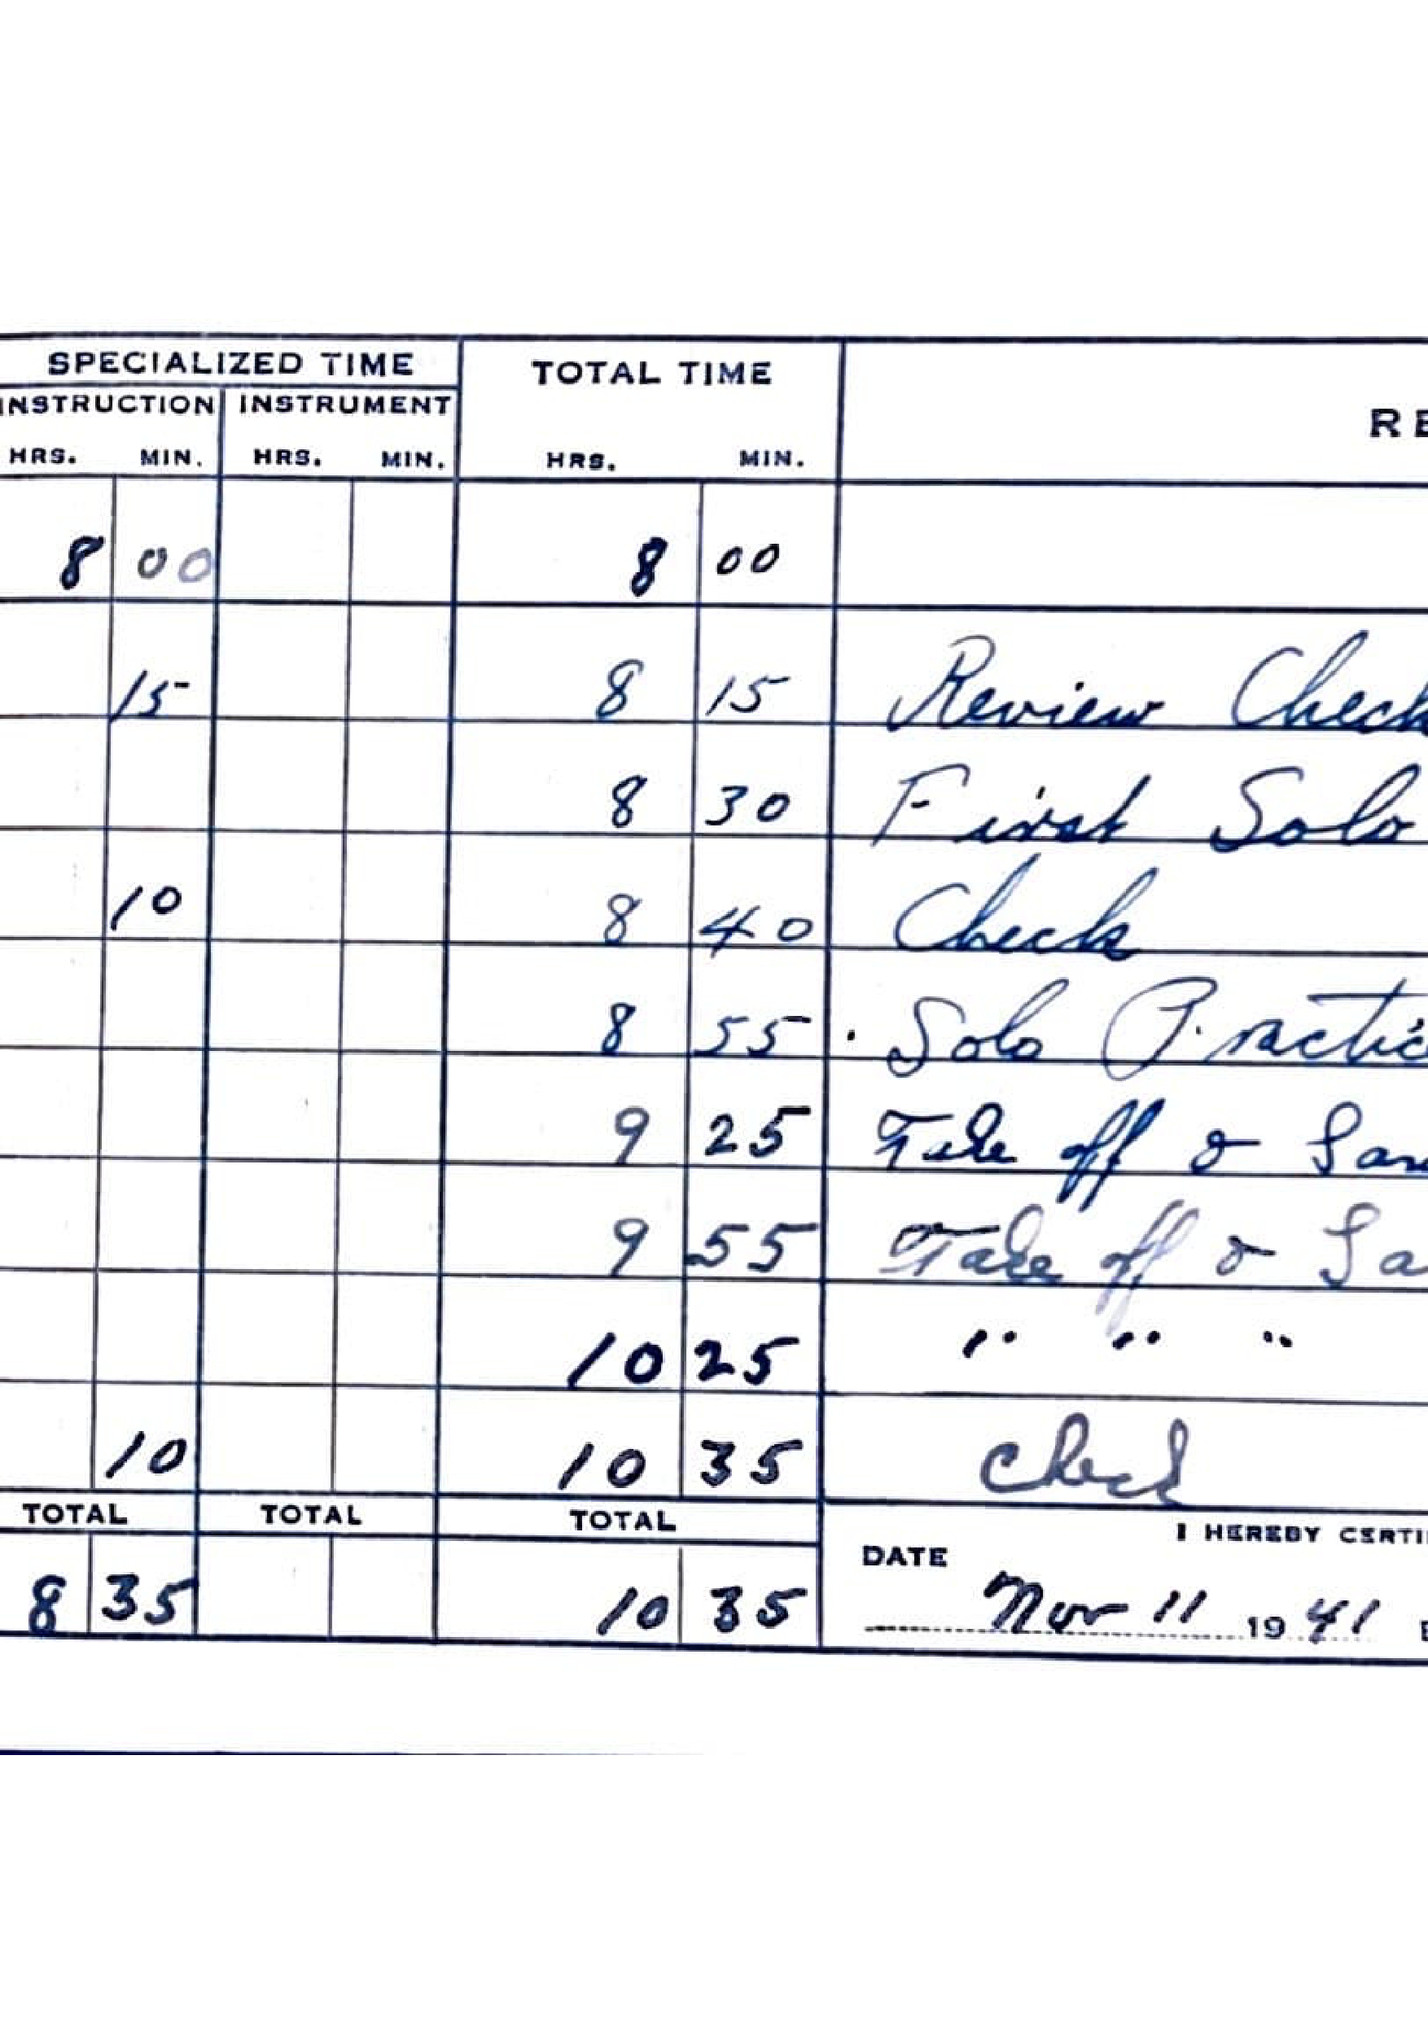 SPECIALIZED TIME TOTAL TIME
INSTRUCTION INSTRUMENT
HRS. MIN. HRS. MIN. HRS. MIN.
8 00 8 00
15 8 15 Review Check
8 30 First Solo
10 8 40 Check
8 55 Solo Practic
9 25 Take off & Lan
9 55 Take off & La
10 25 " " "
10 10 35 Check
TOTAL TOTAL TOTAL
I HEREBY CERTI
DATE Nov 11 1941
8 35 10 35